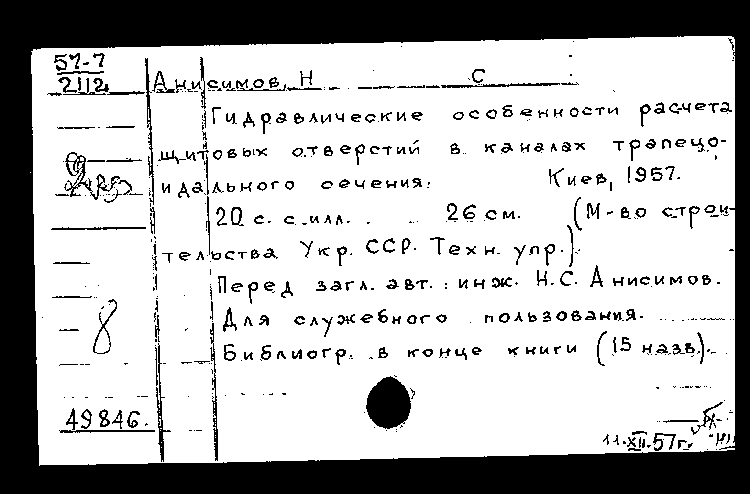 57-7
2112
Анисимов, Н С
Гидравлические особенности расчета
щитовых отверстий в каналах трапецо-
идального сечения. Киев, 1957.
20 с. с илл. 26 см. (М-во строи-
тельства Укр. ССР. Техн. упр.).
Перед загл. авт.: инж. Н.С. Анисимов.
Для служебного пользования.
Библиогр. в конце книги (15 назв.).
8
49846.
11.XII.57г.